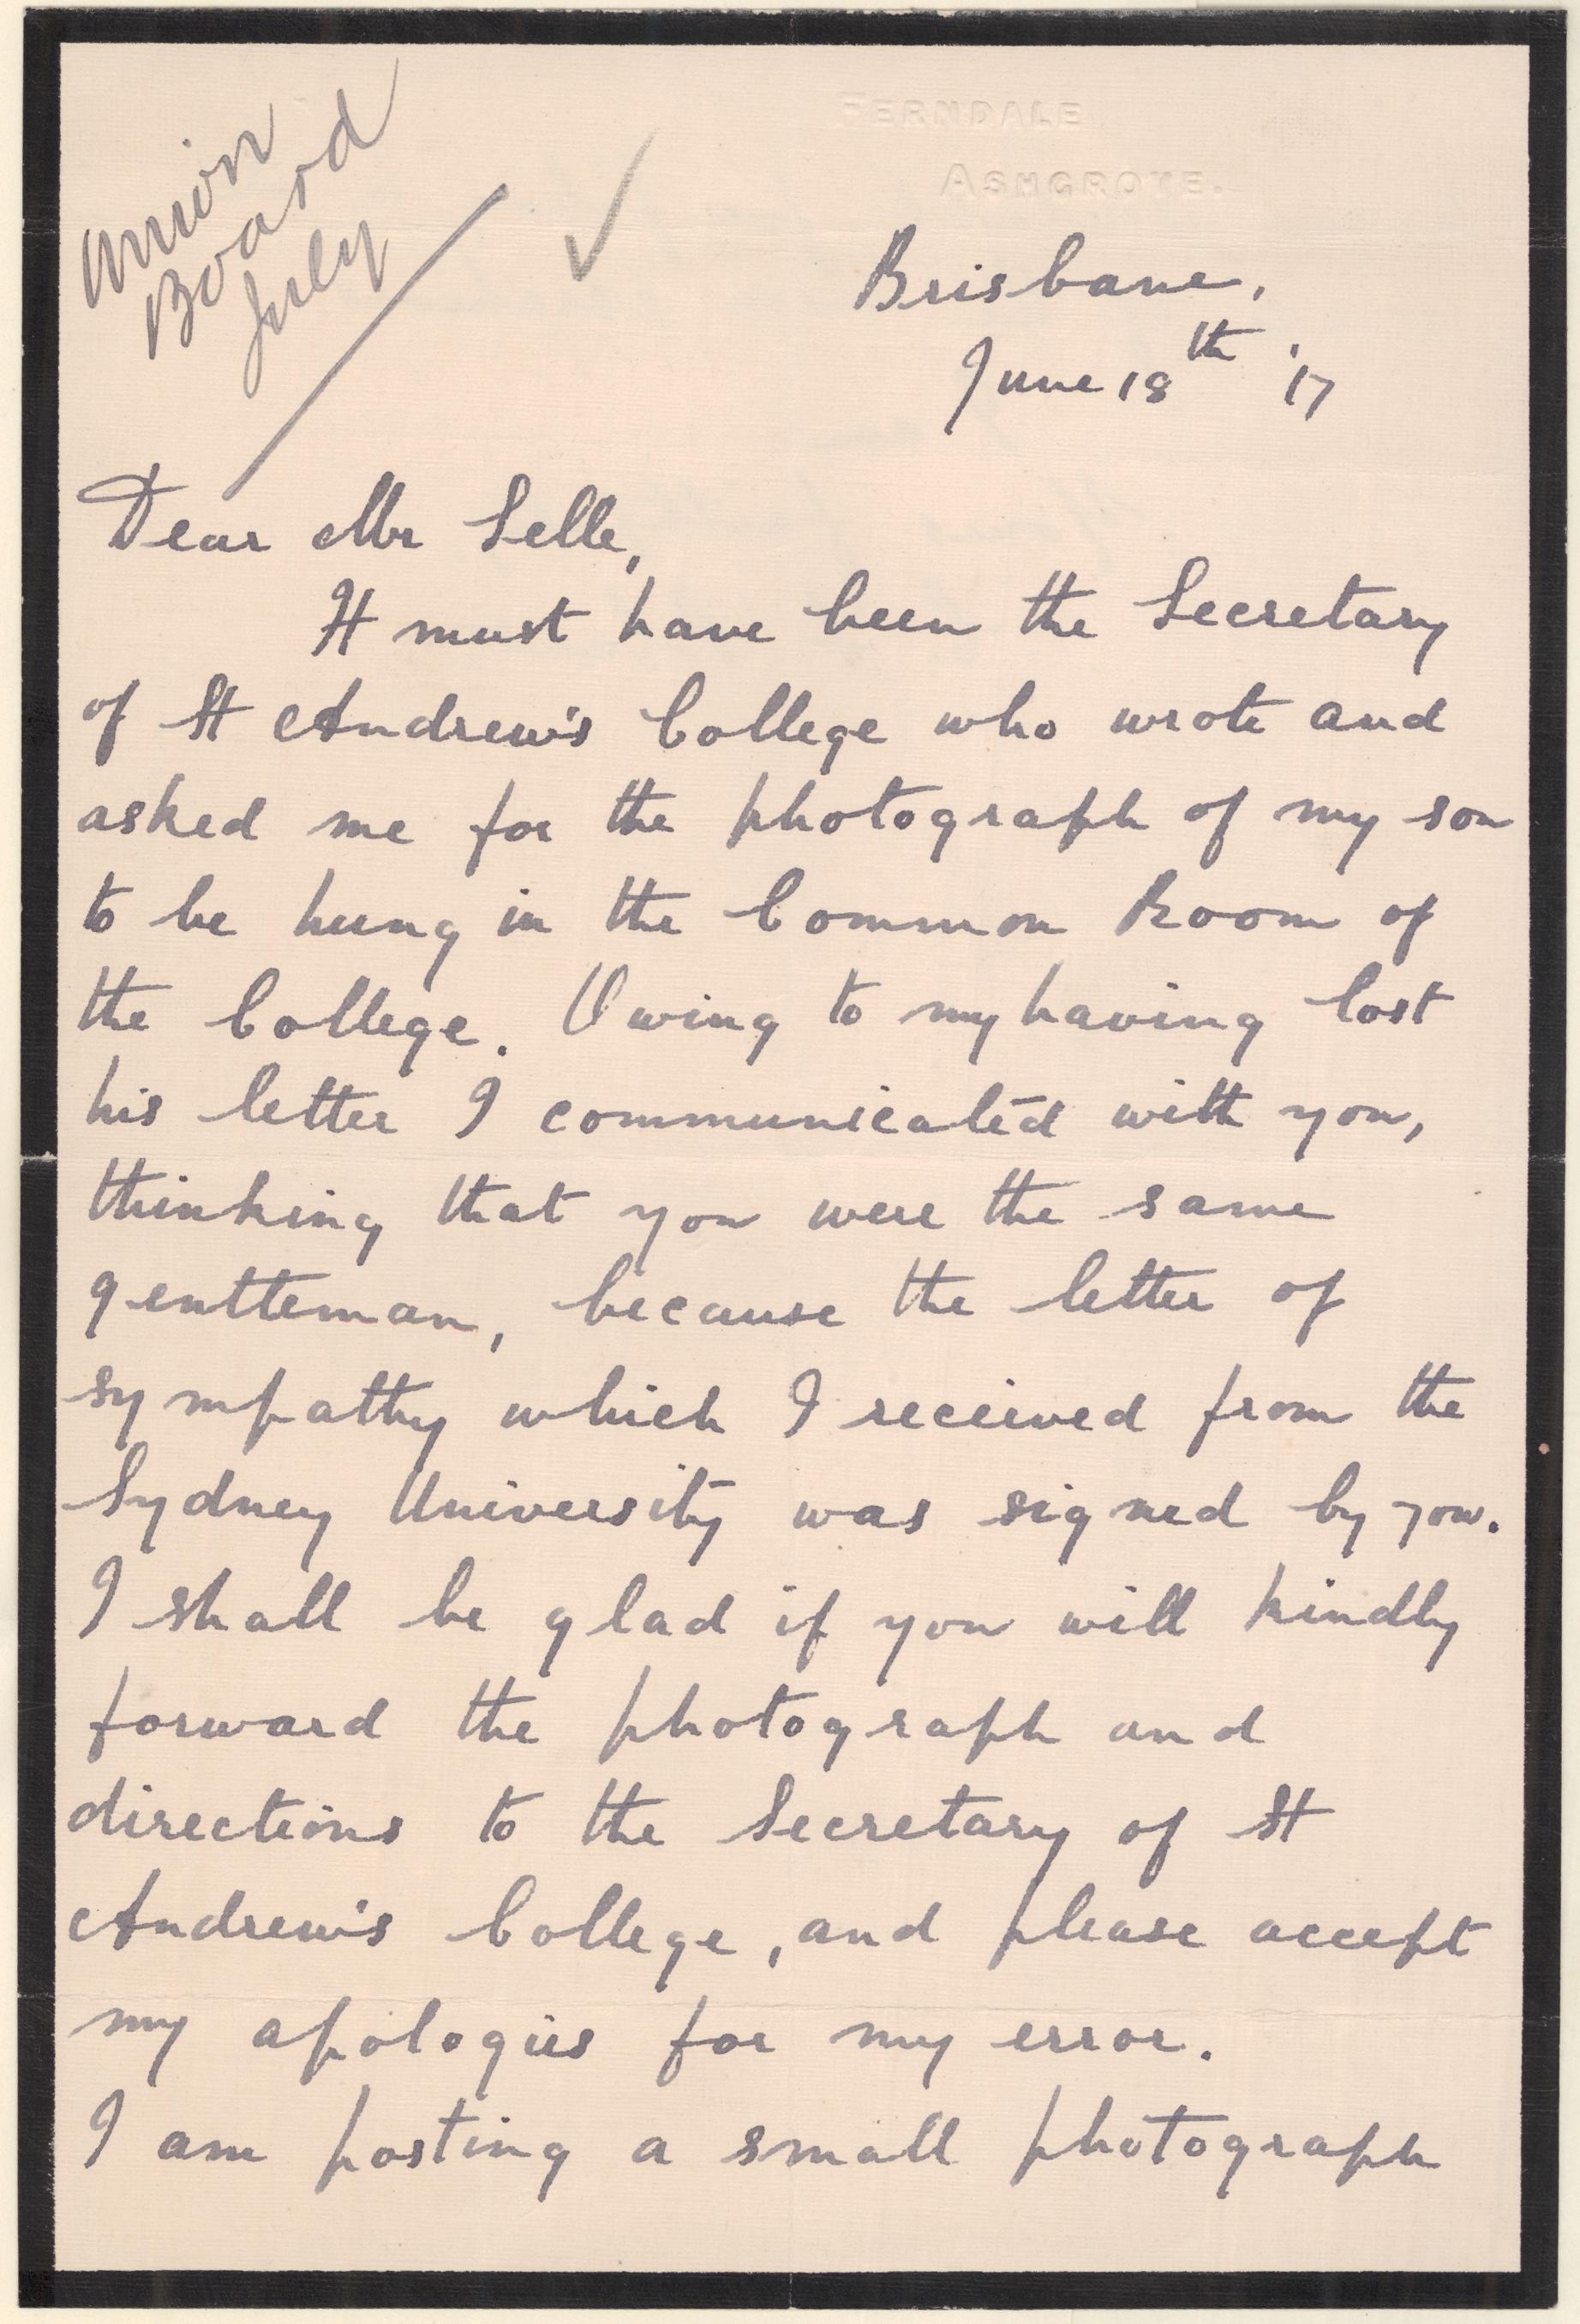 Union
Board
July
FERNDALE
ASHGROVE.
Brisbane,
June 18th '17
Dear Mr Selle,
It must have been the Secretary
of St Andrew's College who wrote and
asked me for the photograph of my son
to be hung in the Common Room of
the College. Owing to my having lost
his letter I communicated with you,
thinking that you were the same
gentleman, because the letter of
sympathy which I received from the
Sydney University was signed by you.
I shall be glad if you will kindly
forward the photograph and
directions to the Secretary of St
Andrew's College, and please accept
my apologies for my error.
I am posting a small photograph